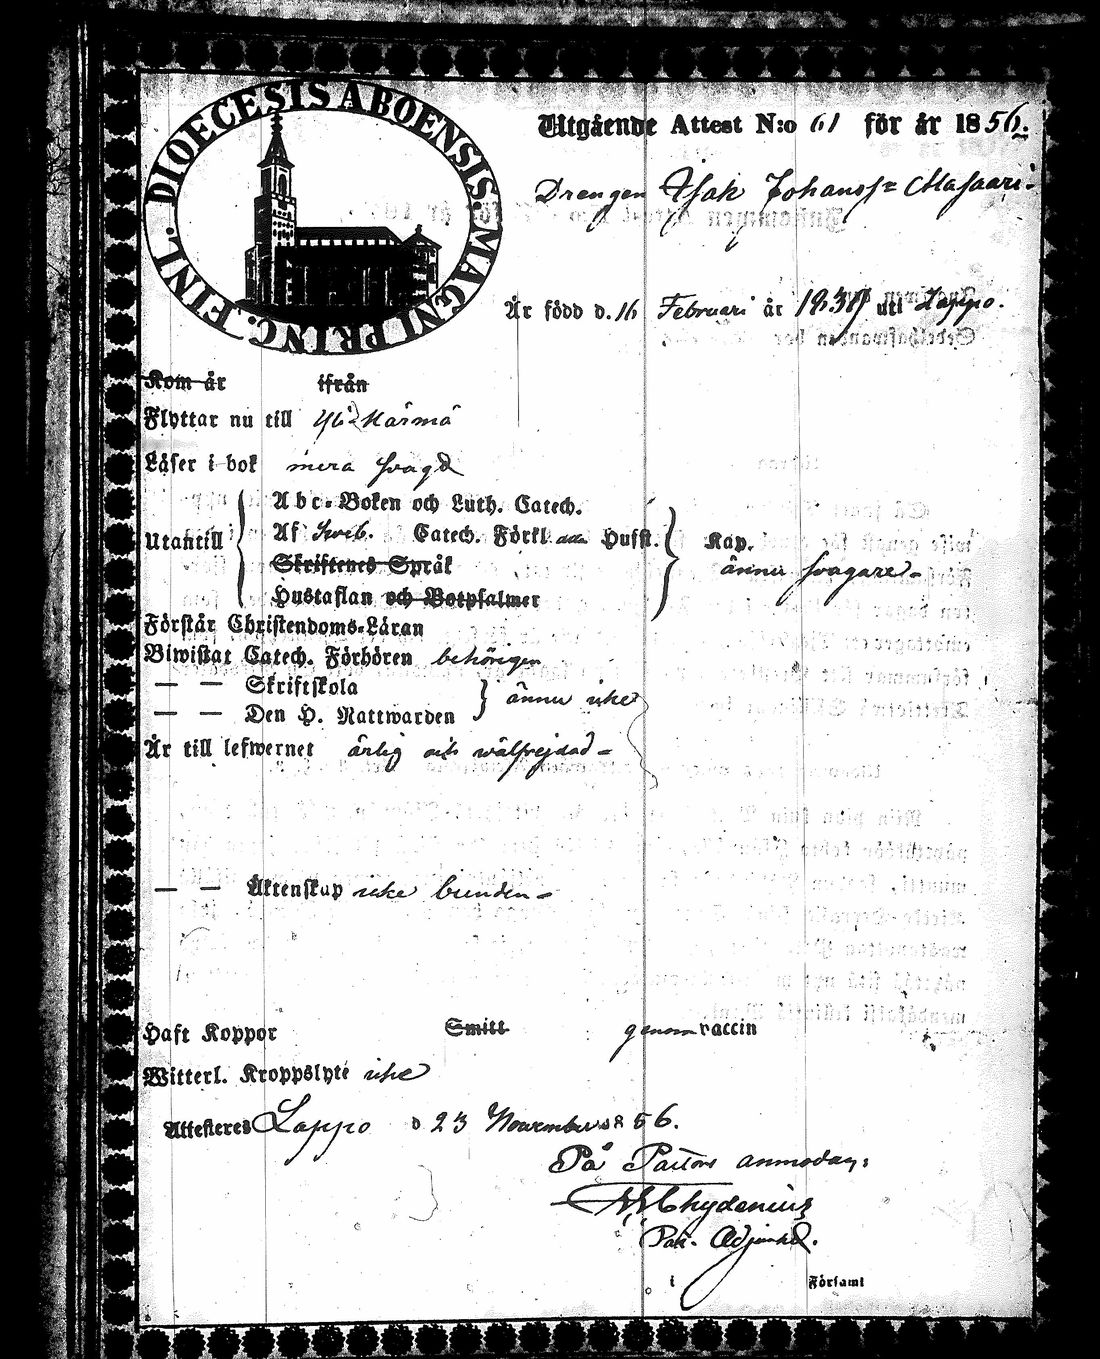 DIOECESIS ABOENSIS. MAGNI PRINC. FINL.
Utgående Attest N:o 61 för år 1856.
Drengen Isak Johanss= Masaari.
Är född d. 16 Februari år uti Lappo.
Kom år ifrån
Flyttar nu till Yli-Kärmä
Läser i bok mera svagt
Utantill
Abc-Boken och Luth. Catech.
Af Sveb. Catech. Förkl. Husst. Kap.
Skriftenes Språk
ännu svagare-
Hustaflan och Botpsalmer
Förstår Christendoms-Läran
Biwistat Catech. Förhören behörigen
— — Skriftskola
— — Den H. Nattwarden
ännu icke
Är till lefwernet ärlig och wälfrejdad-
— — Äktenskap icke bunden-
Haft Koppor Smitt genom vaccin
Witterl. Kroppslyte icke
Attesteres Lappo d 23 November 1856.
På Pastors anmodan:
Chydenius
Past. Adjunkt.
i Församl